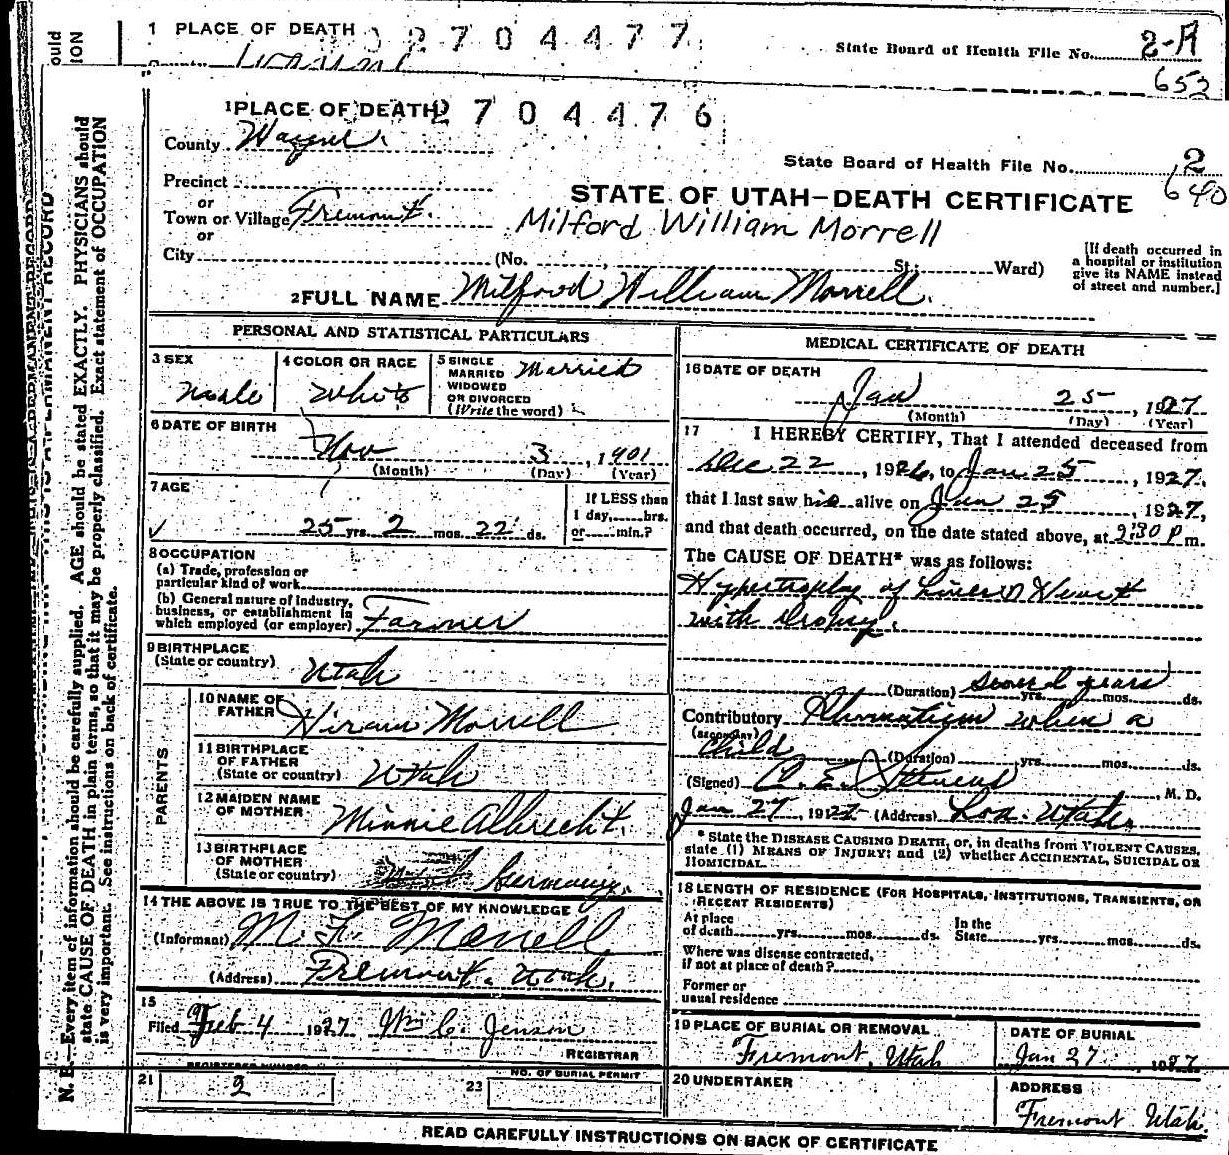 1 PLACE OF DEATH 02704477
State Board of Health File No. 2-A
652
1 PLACE OF DEATH 2704476
County Wayne
State Board of Health File No. 2
640
Precinct
or
STATE OF UTAH—DEATH CERTIFICATE
Town or Village Fremont.
Milford William Morrell
or
City (No. St.; Ward)
[If death occurred in
a hospital or institution
give its NAME instead
of street and number.]
2 FULL NAME Milford William Morrell.
PERSONAL AND STATISTICAL PARTICULARS
3 SEX Male
4 COLOR OR RACE White
5 SINGLE
MARRIED
WIDOWED
OR DIVORCED
(Write the word)
Married
6 DATE OF BIRTH
Nov 3, 1901
(Month) (Day) (Year)
7 AGE
25 yrs. 2 mos. 22 ds.
If LESS than
1 day, hrs.
or min.?
8 OCCUPATION
(a) Trade, profession or
particular kind of work
(b) General nature of industry,
business, or establishment in
which employed (or employer) Farmer
9 BIRTHPLACE
(State or country) Utah
PARENTS
10 NAME OF
FATHER Hiram Morrell
11 BIRTHPLACE
OF FATHER
(State or country) Utah
12 MAIDEN NAME
OF MOTHER Minnie Albrecht.
13 BIRTHPLACE
OF MOTHER
(State or country) Germany.
14 THE ABOVE IS TRUE TO THE BEST OF MY KNOWLEDGE
(Informant) M. Morrell
(Address) Fremont. Utah.
15
Filed Feb 4 1927 Wm C. Jenson
REGISTRAR
REGISTERED NUMBER
21 2
NO. OF BURIAL PERMIT
23
MEDICAL CERTIFICATE OF DEATH
16 DATE OF DEATH
Jan 25, 1927
(Month) (Day) (Year)
17 I HEREBY CERTIFY, That I attended deceased from
Dec 22, 1926, to Jan 25, 1927.
that I last saw him alive on Jan 25, 1927,
and that death occurred, on the date stated above, at 2:30 P m.
The CAUSE OF DEATH* was as follows:
Hypertrophy of Liver & Heart
with Dropsy.
(Duration) several years yrs. mos. ds.
Contributory Rhumatism when a
(secondary)
child (Duration) yrs. mos. ds.
(Signed) C. E. Stevens, M. D.
Jan 27, 1927 (Address) Loa. Utah.
* State the DISEASE CAUSING DEATH, or, in deaths from VIOLENT CAUSES,
state (1) MEANS OF INJURY; and (2) whether ACCIDENTAL, SUICIDAL OR
HOMICIDAL.
18 LENGTH OF RESIDENCE (FOR HOSPITALS, INSTITUTIONS, TRANSIENTS, OR
RECENT RESIDENTS)
At place
of death yrs. mos. ds.
In the
State yrs. mos. ds.
Where was disease contracted,
if not at place of death?
Former or
usual residence
19 PLACE OF BURIAL OR REMOVAL
Fremont, Utah
DATE OF BURIAL
Jan 27 1927
20 UNDERTAKER
ADDRESS
Fremont Utah.
READ CAREFULLY INSTRUCTIONS ON BACK OF CERTIFICATE
N. B.—Every item of information should be carefully supplied. AGE should be stated EXACTLY. PHYSICIANS should
state CAUSE OF DEATH in plain terms, so that it may be properly classified. Exact statement of OCCUPATION
is very important. See instructions on back of certificate.